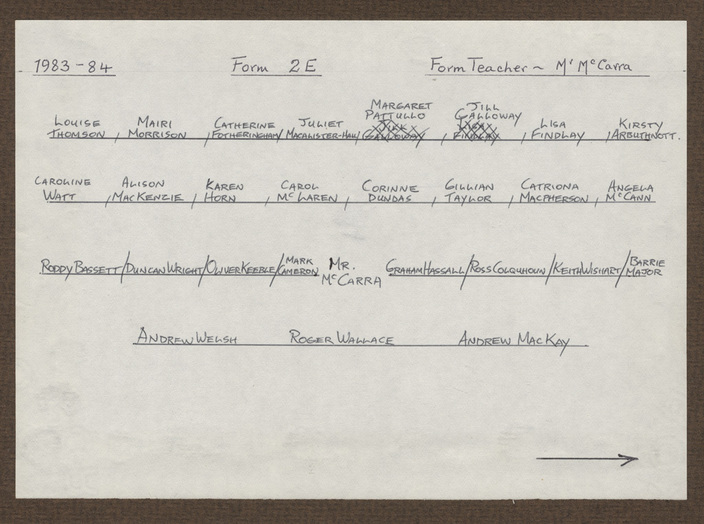 1983-84 Form 2E Form Teacher ~ Mr McCarra
Louise Thomson, Mairi Morrison, Catherine Fotheringham / Juliet Macalister-Hall / Margaret Pattullo, Jill Galloway, Lisa Findlay, Kirsty Arbuthnott.
Caroline Watt, Alison MacKenzie, Karen Horn, Carol McLaren, Corinne Dundas, Gillian Taylor, Catriona Macpherson, Angela McCann
Roddy Bassett / Duncan Wright / Oliver Keeble / Mark Cameron Mr. McCarra Graham Hassall / Ross Colquhoun / Keith Wishart / Barrie Major
Andrew Welsh Roger Wallace Andrew MacKay